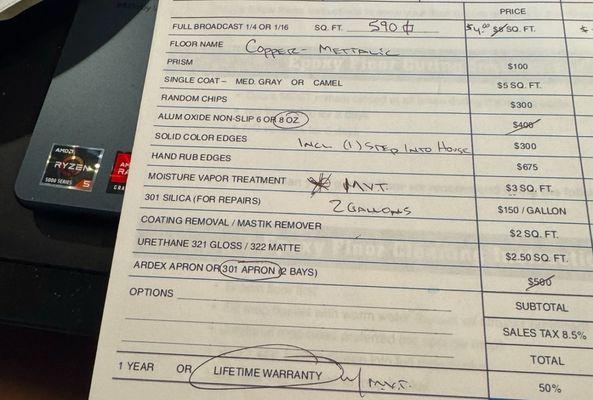 PRICE
FULL BROADCAST 1/4 OR 1/16 SQ. FT. 590 ⏀ $4.00 $5 SQ. FT. $
FLOOR NAME COPPER - METTALIC
PRISM $100
SINGLE COAT – MED. GRAY OR CAMEL $5 SQ. FT.
RANDOM CHIPS $300
ALUM OXIDE NON-SLIP 6 OR 8 OZ $400
SOLID COLOR EDGES INCL (1) STEP INTO HOUSE $300
HAND RUB EDGES $675
MOISTURE VAPOR TREATMENT M.V.T. $3 SQ. FT.
301 SILICA (FOR REPAIRS) 2 GALLONS $150 / GALLON
COATING REMOVAL / MASTIK REMOVER $2 SQ. FT.
URETHANE 321 GLOSS / 322 MATTE $2.50 SQ. FT.
ARDEX APRON OR 301 APRON (2 BAYS) $500
OPTIONS SUBTOTAL
SALES TAX 8.5%
TOTAL
1 YEAR OR LIFETIME WARRANTY w/ M.V.T. 50%
AMD
RYZEN
5000 SERIES 5
AMD
RA
GRA